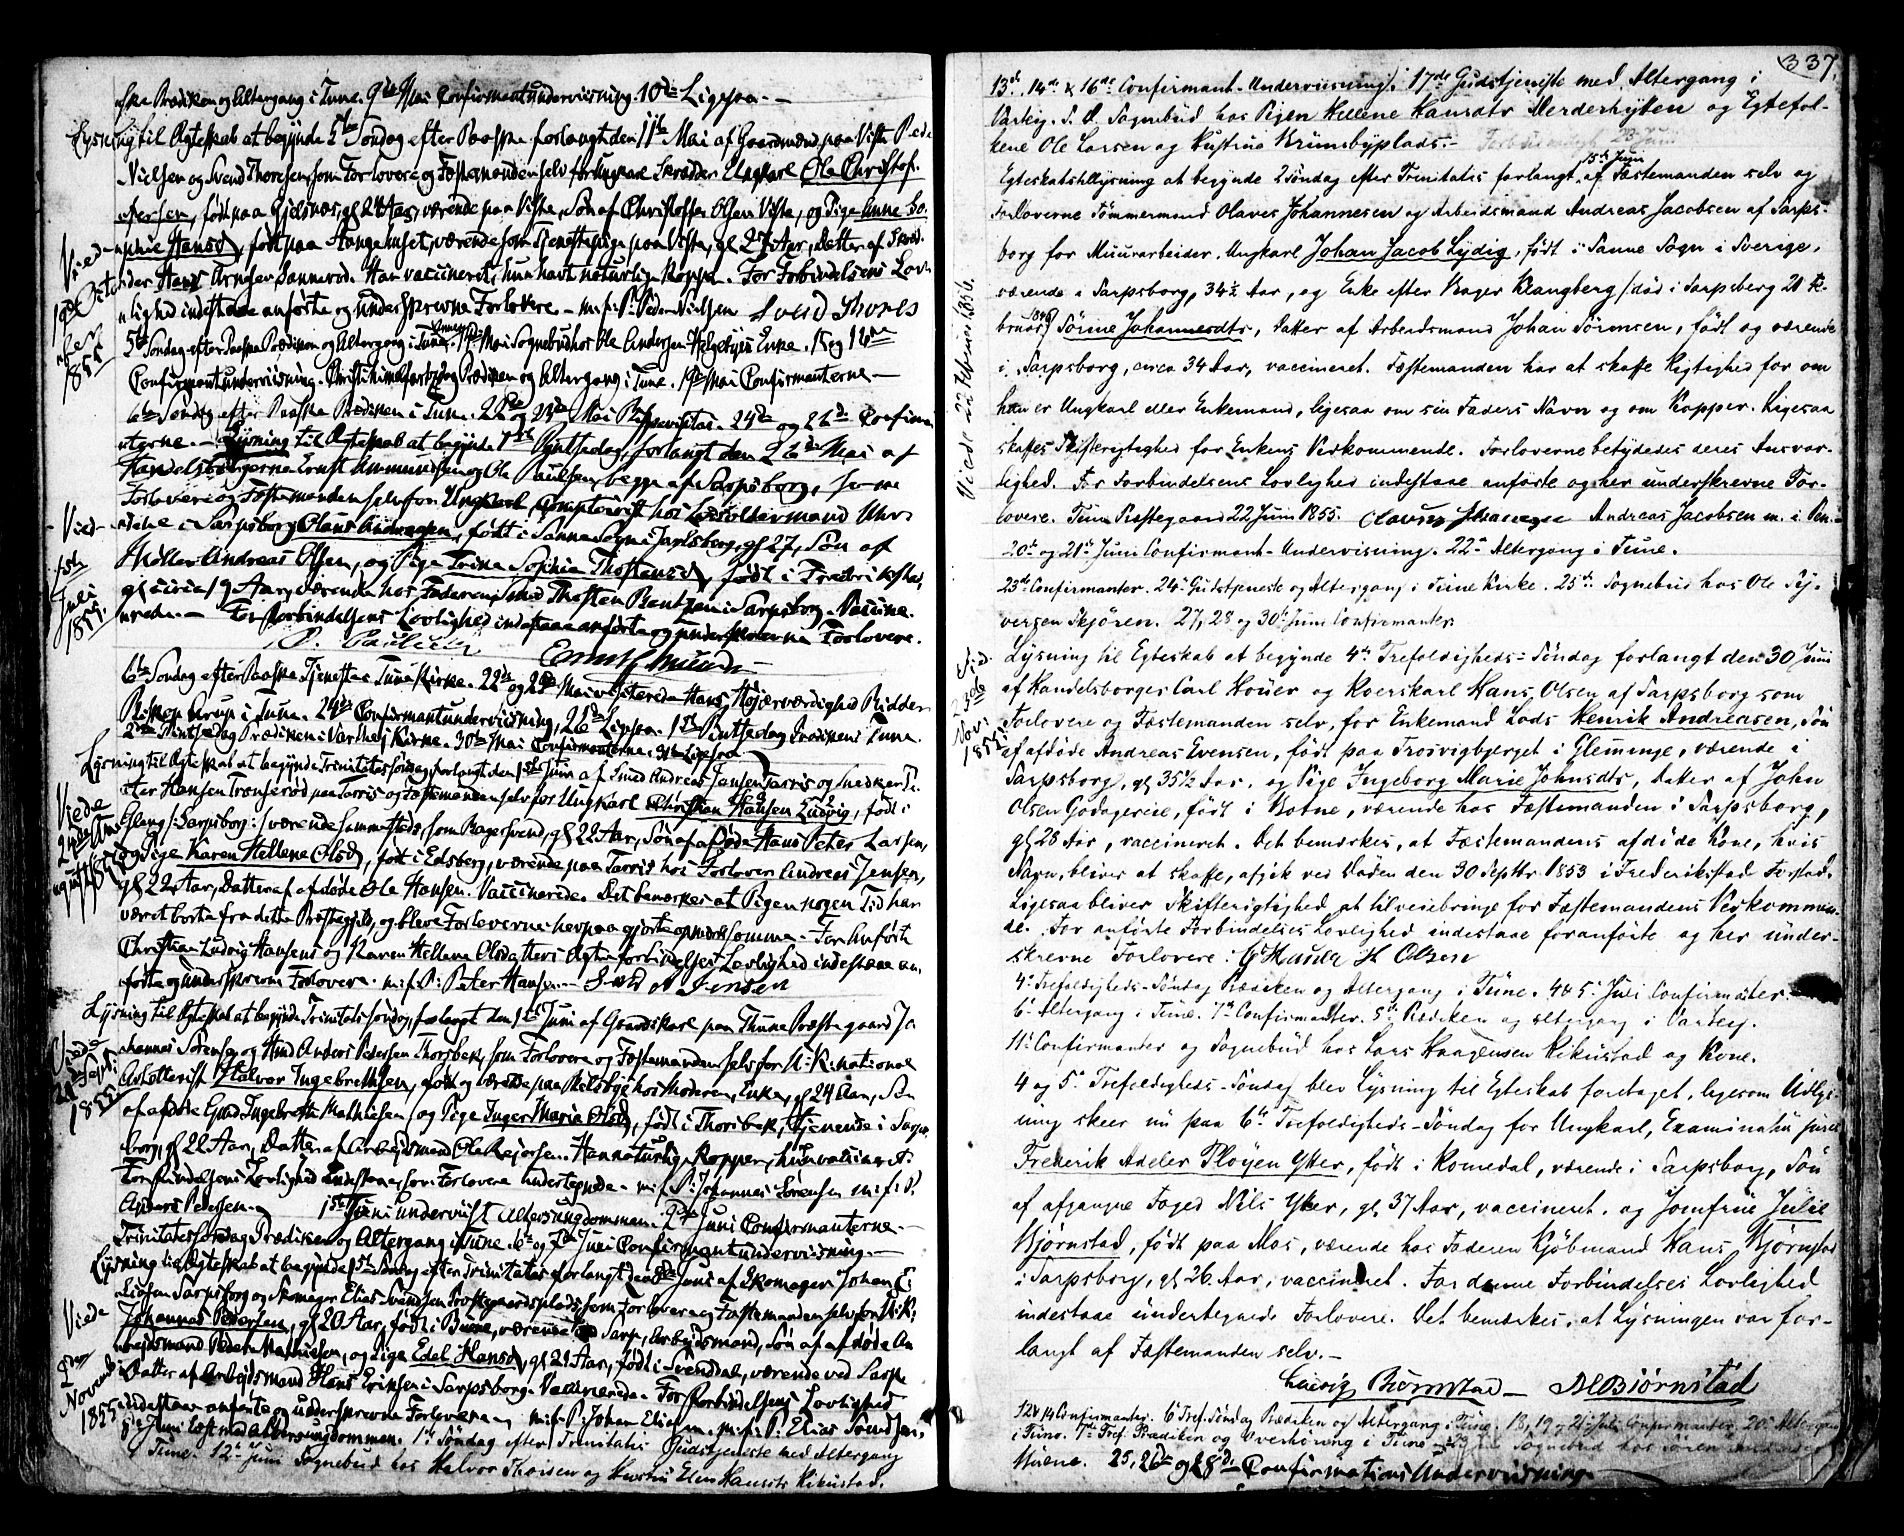 ske Prædiken og Altergang i Tune. 9de Mai Confirmantundervisning. 10de Ligesaa. —
Lysning til Egteskab at begynde 5te Søndag efter Paaske forlangt den 11te Mai af Gaardmænd paa Viste Peder
Nielsen og Svend Thoresen, som Forlovere og Fæstemanden selv for Ungkarl Skrædder Ole Christof-
fersen, født paa Gjelsnæs, gl 24 Aar, værende paa Viste, Søn af Christoffer Olsen Viste, og Pige Anne So-
phie Hansd, født paa Haugehuset, værende som Tjenestepige paa Viste, gl 27 Aar, Datter af Skræd-
der Hans Sannerød. Han vaccineret, hun havt naturlige Kopper. For Forbindelsens Lov-
lighed indestaae anførte og underskrevne Forlovere — m. f. P. Peder Nielsen Svend Thores
Viede 19de October 1855
5te Søndag efter Paaske Prædiken og Altergang i Tune. 14de Mai Sognebud hos Ole Andersen Helgebyes Enke. 15 og 16de
Confirmantundervisning. Christi Himmelfartsdag Prædiken og Altergang i Tune. 19de Mai Confirmanterne —
6te Søndag efter Paaske Prædiken i Tune. 22de og 23de Mai Bispevisitas. 24de og 26de Confirma
nterne. — Lysning til Egteskab at begynde 1ste Pintsedag, forlangt den 26de Mai af
Handelsborgerne Ernst Ammundsen og Ole Paulsen, begge af Sarpsborg, som
Forlovere og Fæstemanden selv for Ungkarl Comptorist hos Lods Oldermand
værende i Sarpsborg Olaus Andreasen, født i Sanne Sogn i Jarlsberg, gl 27, Søn af
Møller Andreas Olsen, og Pige Trine Sophie Thostensd, født i Fredrikshald,
gl circa 19 Aar, værende hos Faderen, Smed Thosten Bentzen i Sarpsborg. Vaccine-
rede. — For Forbindelsens Lovlighed indestaae anførte og underskrevne Forlovere.
O. Paulsen Ernst Amundsen
Viede 15de Juli 1855.
6te Søndag efter Paaske Tjeneste i Tune Kirke. 22de og 23de Mai visiterede Hans Høiærværdighed Ridder
Biskop Arup i Tune. 24de Confirmantundervisning, 26de Ligesaa. 1ste Pintsedag Prædiken i Tune.
2den Pintsedag Prædiken i Varteig Kirke. 30te Mai Confirmanterne. 31te Ligesaa.
Lysning til Egteskab at begynde Trinitatis Søndag, forlangt den 1ste Juni af Smed Andreas Jensen Torris og Snedker Pe-
ter Hansen Tronserød paa Torris og Fæstemanden selv for Ungkarl Christian Hansen Ludvig, født i
Gleng /: Sarpsborg :/ værende sammesteds, som Bagersvend, gl 22 Aar, Søn af afdøde Hans Peter Larsen,
og Pige Karen Hellene Olsd, født i Edsberg, værende paa Torris hos Forlover Andreas Jensen,
gl 22 Aar, Datter af afdøde Ole Hansen. Vaccinerede. Det bemærkes at Pigen nogen Tid har
været borte fra dette Præstegjeld, og bleve Forloverne herpaa gjorte opmærksomme. — For anførte
Christian Ludvig Hansens og Karen Hellene Olsdatters Egteforbindelses Lovlighed indestaae an-
førte og underskrevne Forlovere. m. f. P. Peter Hansen — Smed A Jensen
Lysning til Egteskab at begynde Trinitatis Søndag, forlangt den 1ste Juni af Gaardskarl paa Thune Præstegaard Jo-
hannes Sørensen og Anders Pedersen Thorsbek, som Forlovere og Fæstemanden selv for U: K: national
Artillerist Halvor Ingebrethsen, født og værende paa hos Moderen, Enke, gl 24 Aar, Søn
af afdøde Ingebreth Mathisen, og Pige Inger Maria Olsd, født i Thorsbek, tjenende i Sarps-
borg, gl 22 Aar, Datter af Arbejdsmand Ole Rejersen. Han naturlige Kopper, hun vaccineret.
Forbindelsens Lovlighed indestaae, som Forlovere undertegnede. m. f. P. Johannes Sørensen m. f. P.
Anders Pedersen. 1ste Juni underviist Almeungdommen. 2den Juni Confirmanterne. —
Trinitatis Søndag Prædiken og Altergang i Tune. 6te og 7de Juni Confirmantundervisning. —
Lysning til Egteskab at begynde 1ste Søndag efter Trinitatis forlangt den 8de Juni af Skomager Johan E-
liasen Sarpsborg og Skomager Elias Svendsen Prostegaardsplads, som Forlovere og Fæstemanden selv for U: K:
Johannes Pedersen, gl 20 Aar, født i Buene, værende ved Sarp, Arbejdsmand, Søn af afdøde Ar-
beidsmand Peder Mathisen, og Pige Edel Hansd, gl 21 Aar, født i Svendal, værende ved Sarp
Datter af Arbejdsmand Hans Eriksen i Sarpsborg. Vaccinerede. For Forbindelsens Lovlighed
indestaae anførte og underskrevne Forlovere m. f. P. Johan Eliasen m. f. P. Elias Svendsen
Viede 2den November 1855
8de Juni Læst med Almeungdommen. 1ste Søndag efter Trinitatis Gudstjeneste med Altergang
i Tune. 12te Juni Sognebud hos Halvor Thoresen og Hustru Elen Hansdtr Kikustad.
337.
13de, 14de & 16de Confirmant-Underviisning. 17de Gudstjeneste med Altergang i
Varteig. S. D. Sognebud hos Pigen Hellene Hansdtr Herderhytten og Egtefol-
kene Ole Larsen og Hustrue Brunsbyplads. —
Egteskabstillysning at begynde 2 Søndag efter Trinitatis forlangt 15de Juni af Fæstemanden selv og
Forloverne Tømmermand Olaves Johannesen og Arbeidsmand Andreas Jacobsen af Sarps-
borg for Muurarbeider, Ungkarl Johan Jacob Lydig, født i Sanne Sogn i Sverige,
værende i Sarpsborg, 34½ Aar, og Enke efter Bager Klangberg /død i Sarpsborg 21 Fe-
bruar 1846/ Sørine Johannesdtr, Datter af Arbeidsmand Johan Sørensen, født og værende
i Sarpsborg, circa 34 Aar, vaccineret. Fæstemanden har at skaffe Rigtighed for om
han er Ungkarl eller Enkemand, ligesaa om sin Faders Navn og om Kopper. Ligesaa
skaffes Skifterigtighed for Enkens Vedkommende. Forloverne betydedes deres Ansvar-
lighed. For Forbindelsens Lovlighed indestaae anførte og her underskrevne For-
lovere. Tune Præstegaard 22 Juni 1855. Olaves Johannesen Andreas Jacobsen m. i Pen.
Viede 22 Februar 1856.
20de og 21de Juni Confirmant-Undervisning. 22de Altergang i Tune.
23de Confirmanter. 24de Gudstjeneste og Altergang i Tune Kirke. 25de Sognebud hos Ole Sy-
versen Skjøren. 27, 28 og 30te Juni Confirmanter.
Lysning til Egteskab at begynde 4de Trefoldigheds-Søndag forlangt den 30 Juni
af Handelsborger Carl Houer og Kverskarl Hans Olsen af Sarpsborg som
Forlovere og Fæstemanden selv, for Enkemand Lods Henrik Andreasen, Søn
af afdøde Andreas Evensen, født paa Trosvigbjerget i Glemminge, værende i
Sarpsborg, gl 35½ Aar, og Pige Ingeborg Marie Johnsdtr, Datter af John
Olsen Godagereie, født i Botne, værende hos Fæstemanden i Sarpsborg,
gl 28 Aar, vaccineret. Det bemærkes, at Fæstemandens afdøde Kone, hvis
Navn bliver at skaffe, afgik ved Døden den 30 Septbr 1853 i Frederikstad Forstad.
Ligesaa bliver Skifterigtighed at tilveiebringe for Fæstemandens Vedkommen-
de. For anførte Forbindelses Lovlighed indestaae foranførte og her under-
skrevne Forlovere: H Olsen
4de Trefoldigheds-Søndag Prædiken og Altergang i Tune. 4 & 5te Juli Confirmanter.
6te Altergang i Tune. 7de Confirmanter. 5te Prædiken og Altergang i Varteig.
11te Confirmanter og Sognebud hos Lars Haagensen Kikustad og Kone.
4 og 5te Trefoldigheds-Søndag blev Lysning til Egteskab foretaget, ligesom Udlys-
ning skeer nu paa 6te Trefoldigheds-Søndag for Ungkarl, Examinatus juris
Frederik Adeler Pløyen Ytter, født i Romedal, værende i Sarpsborg, Søn
af afgangne Foged Nils Ytter, gl. 37 Aar, vaccineret, og Jomfrue Julie
Bjørnstad, født paa Mos, værende hos Faderen Kjøbmand Hans Bjørnstad
i Sarpsborg, gl 26 Aar, vaccineret. For denne Forbindelses Lovlighed
indestaae undertegnede Forlovere. Det bemærkes, at Lysningen var for-
langt af Fæstemanden selv. —
Ludvig Bjørnstad — Bjørnstad
12 & 14 Confirmanter. 6te Tref. Søndag Prædiken og Altergang i Tune. 18, 19 og 21 Juli Confirmanter. 20de Altergang
i Tune. 7de Tref. Prædiken og Overhøring i Tune — 23 Sognebud hos Søren
Buene. 25, 26de og 28de Confirmations Undervisning.